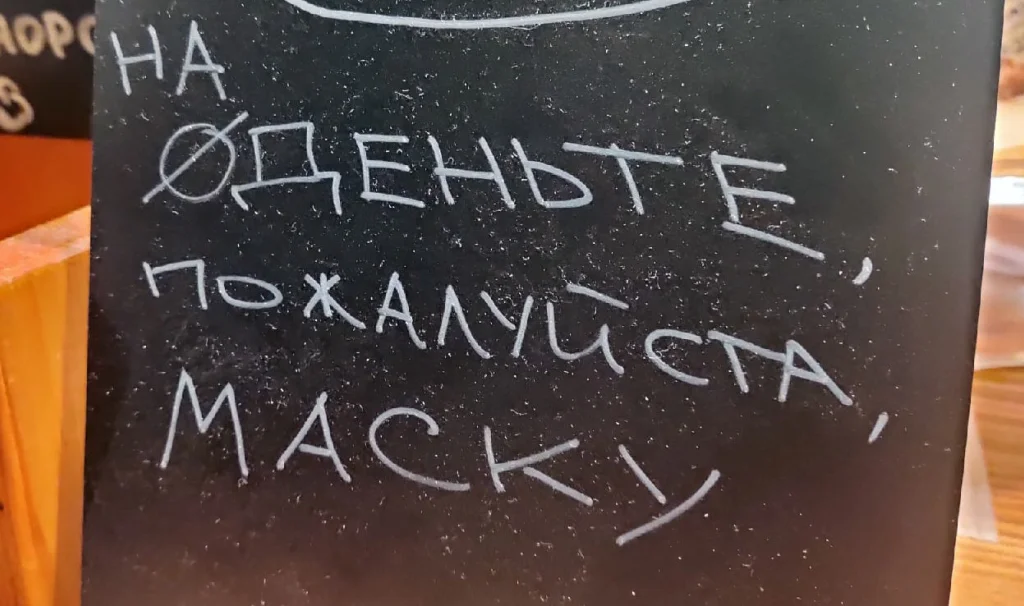 НА
ОДЕНЬТЕ,
ПОЖАЛУЙСТА,
МАСКУ